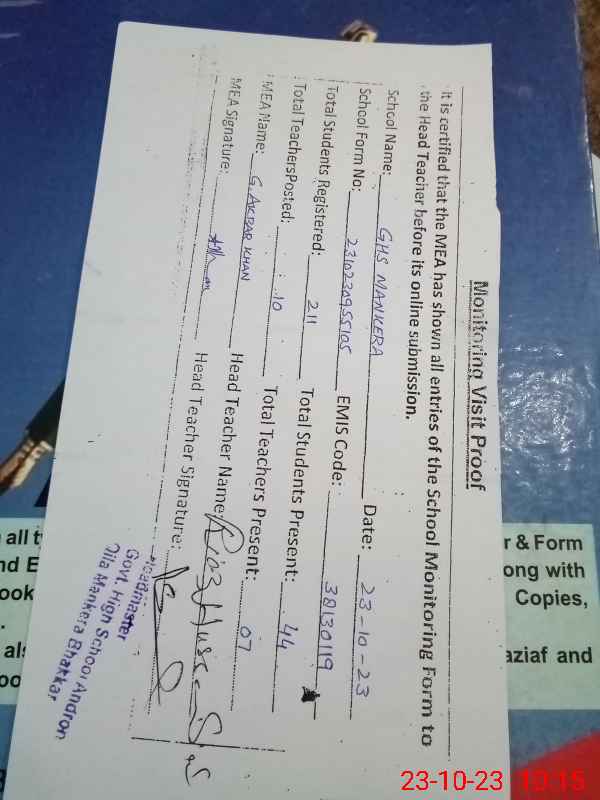 Monitoring Visit Proof
It is certified that the MEA has shown all entries of the School Monitoring Form to
the Head Teacher before its online submission.
School Name: GHS MANKERA Date: 23-10-23
School Form No: 231023095S105 EMIS Code: 38130119
Total Students Registered: 211 Total Students Present: 44
Total TeachersPosted: 10 Total Teachers Present: 07
MEA Name: G. AKBAR KHAN Head Teacher Name: Riaz Hussain
MEA Signature: Head Teacher Signature:
Headmaster
Govt. High School Andron
Qila Mankera Bhakkar
r & Form
ong with
Copies,
aziaf and
all
nd E
ook
als
23-10-23 10:15